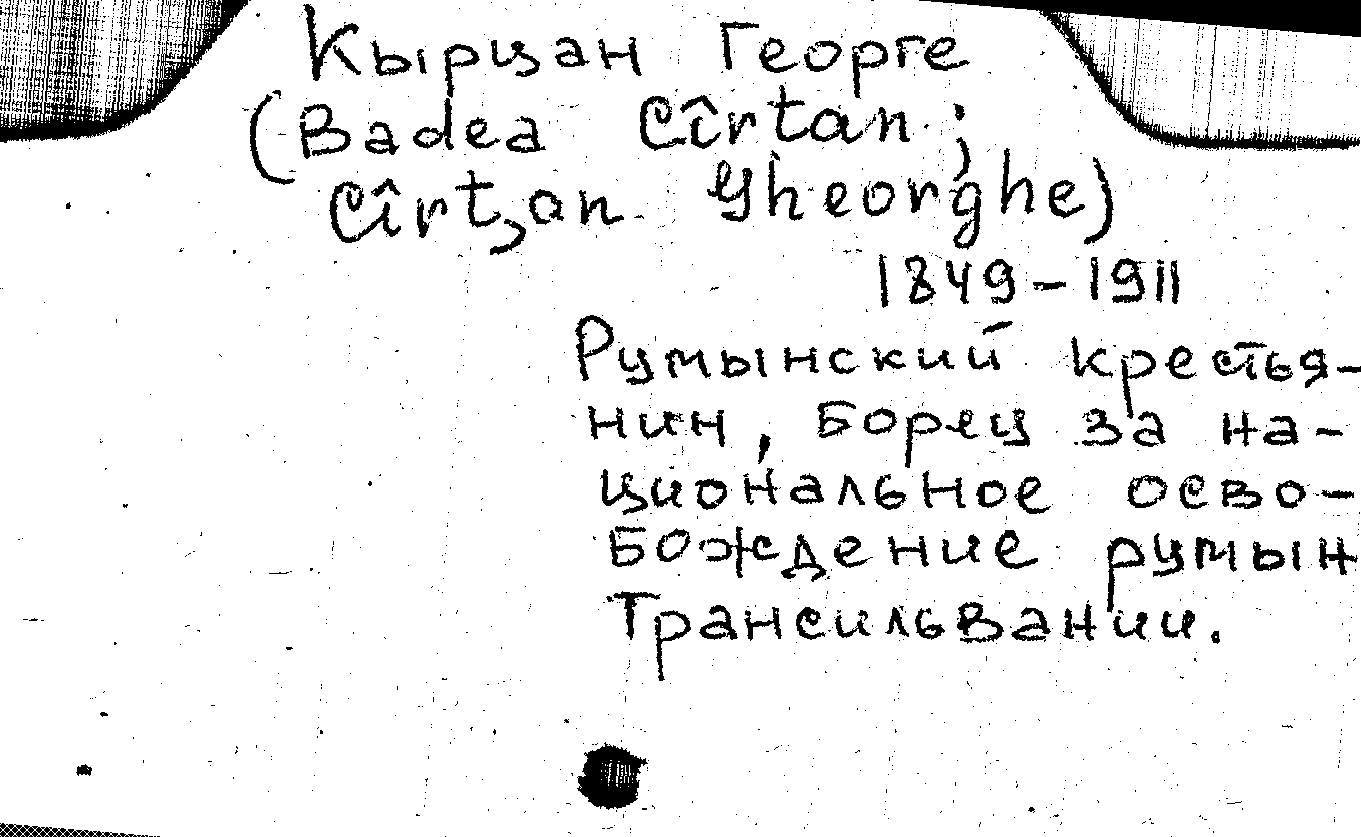 Кырцан Георге
(Badea Cîrtan;
Cîrţan Gheorghe)
1849-1911
Румынский крестья-
нин, борец за на-
циональное осво-
бождение румын
Трансильвании.